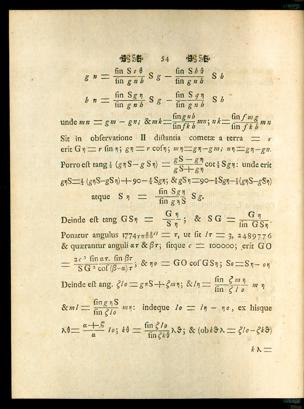 54
g n = sin S r θ / sin g n b S g − sin S b θ / sin g n b S b
b n = sin S g η / sin g n b S g − sin S g η / sin g n b S b
unde mn = gm − gn; & mk = sin gnb / sin fkb mn; nk = sin fmg / sin fkb mn
Sit in observatione II distantia cometæ a terra = r
erit Gη = r sin η; gη = r cos η; mη = gη − gm; nη = gη − gn.
Porro est tang ½ (gηS − gSη) = gS − gη / gS + gη cot ½ Sgη: unde erit
gηS = ½ (gηS − gSη) + 90 − ½ Sgη; & gSη = 90 − ½ Sgη − ½ (gηS − gSη)
atque Sη = sin Sgη / sin gηS Sg.
Deinde est tang GSη = Gη / Sη ; & SG = Gη / sin GSη.
Ponatur angulus = τ, ut sit lτ = 3, 2489776
& quærantur anguli ατ & βτ; sitque c = 100000; erit GO
= 2c³ sin ατ. sin βτ / SG² cos (β−α)τ; & ηo = GO cos GSη; So = Sη − oη
Deinde est ang. ζlo = gηS + ζmη; & lη = sin ζmη / sin ζlo mη
& ml = sin gηS / sin ζlo mη: indeque lo = lη − ηo, ex hisque
lo; kθ = sin ζlo / sin ζkθ λθ; & (ob kθλ = ζlo − ζkθ)
kλ =